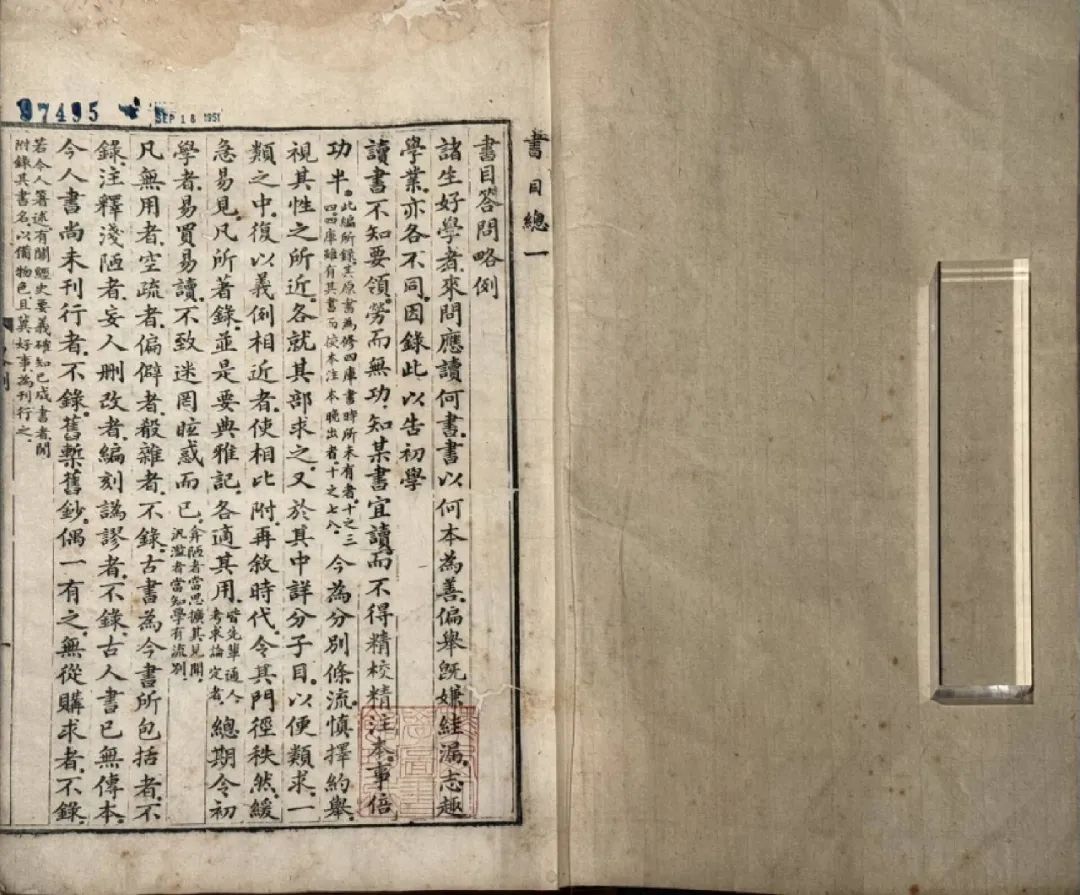 書目總一
書目答問略例
諸生好學者來問應讀何書書以何本為善偏舉既嫌絓漏志趣
學業亦各不同因錄此以告初學
讀書不知要領勞而無功知某書宜讀而不得精校精注本事倍
功半此編所錄其原書為修四庫書時所未有者十之三四四庫雖有其書而校本注本晚出者十之七八今為分別條流慎擇約舉
視其性之所近各就其部求之又於其中詳分子目以便類求一
類之中復以義例相近者使相比附再敘時代令其門徑秩然緩
急易見凡所著錄並是要典雅記各適其用皆先輩通人考求論定者總期令初
學者易買易讀不致迷罔眩惑而已弇陋者當思擴其見聞汎濫者當知學有流別
凡無用者空疏者偏僻者殽雜者不錄古書為今書所包括者不
錄注釋淺陋者妄人刪改者編刻譌謬者不錄古人書已無傳本
今人書尚未刊行者不錄舊槧舊鈔偶一有之無從購求者不錄
若今人著述有關經史要義確知已成書者間
附錄其書名以備物色且冀好事為刊行之
97495
SEP 18 1951